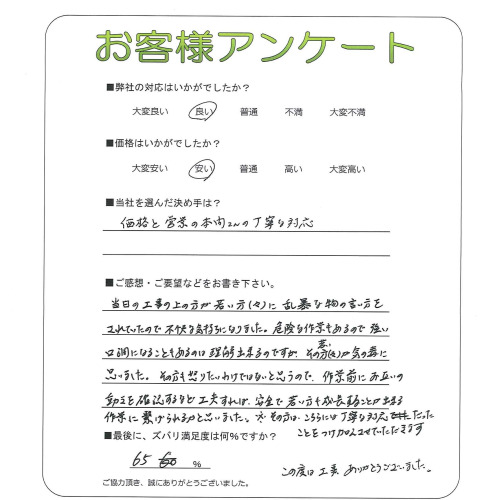 お客様アンケート
■弊社の対応はいかがでしたか？
大変良い 良い 普通 不満 大変不満
■価格はいかがでしたか？
大変安い 安い 普通 高い 大変高い
■当社を選んだ決め手は？
価格と営業の本向さんの丁寧な対応
■ご感想・ご要望などをお書き下さい。
当日の工事の上の方が若い方(々)に乱暴な物の言い方を
されていたので不快な気持ちになりました。危険な作業もあるので強い
口調になることもあるのは理解出来るのですが、その若い方(々)が気の毒に
思いました。その方も怒りたいわけではないと思うので、作業前にお互いの
動きを確認するなど工夫すれば、安全で若い方も成長することが出来る
作業に繋げられるかと思いました。その方は、こちらには丁寧な対応だった
ことをつけ加えさせていただきます
■最後に、ズバリ満足度は何％ですか？
65 %
この度は工事、ありがとうございました。
ご協力頂き、誠にありがとうございました。